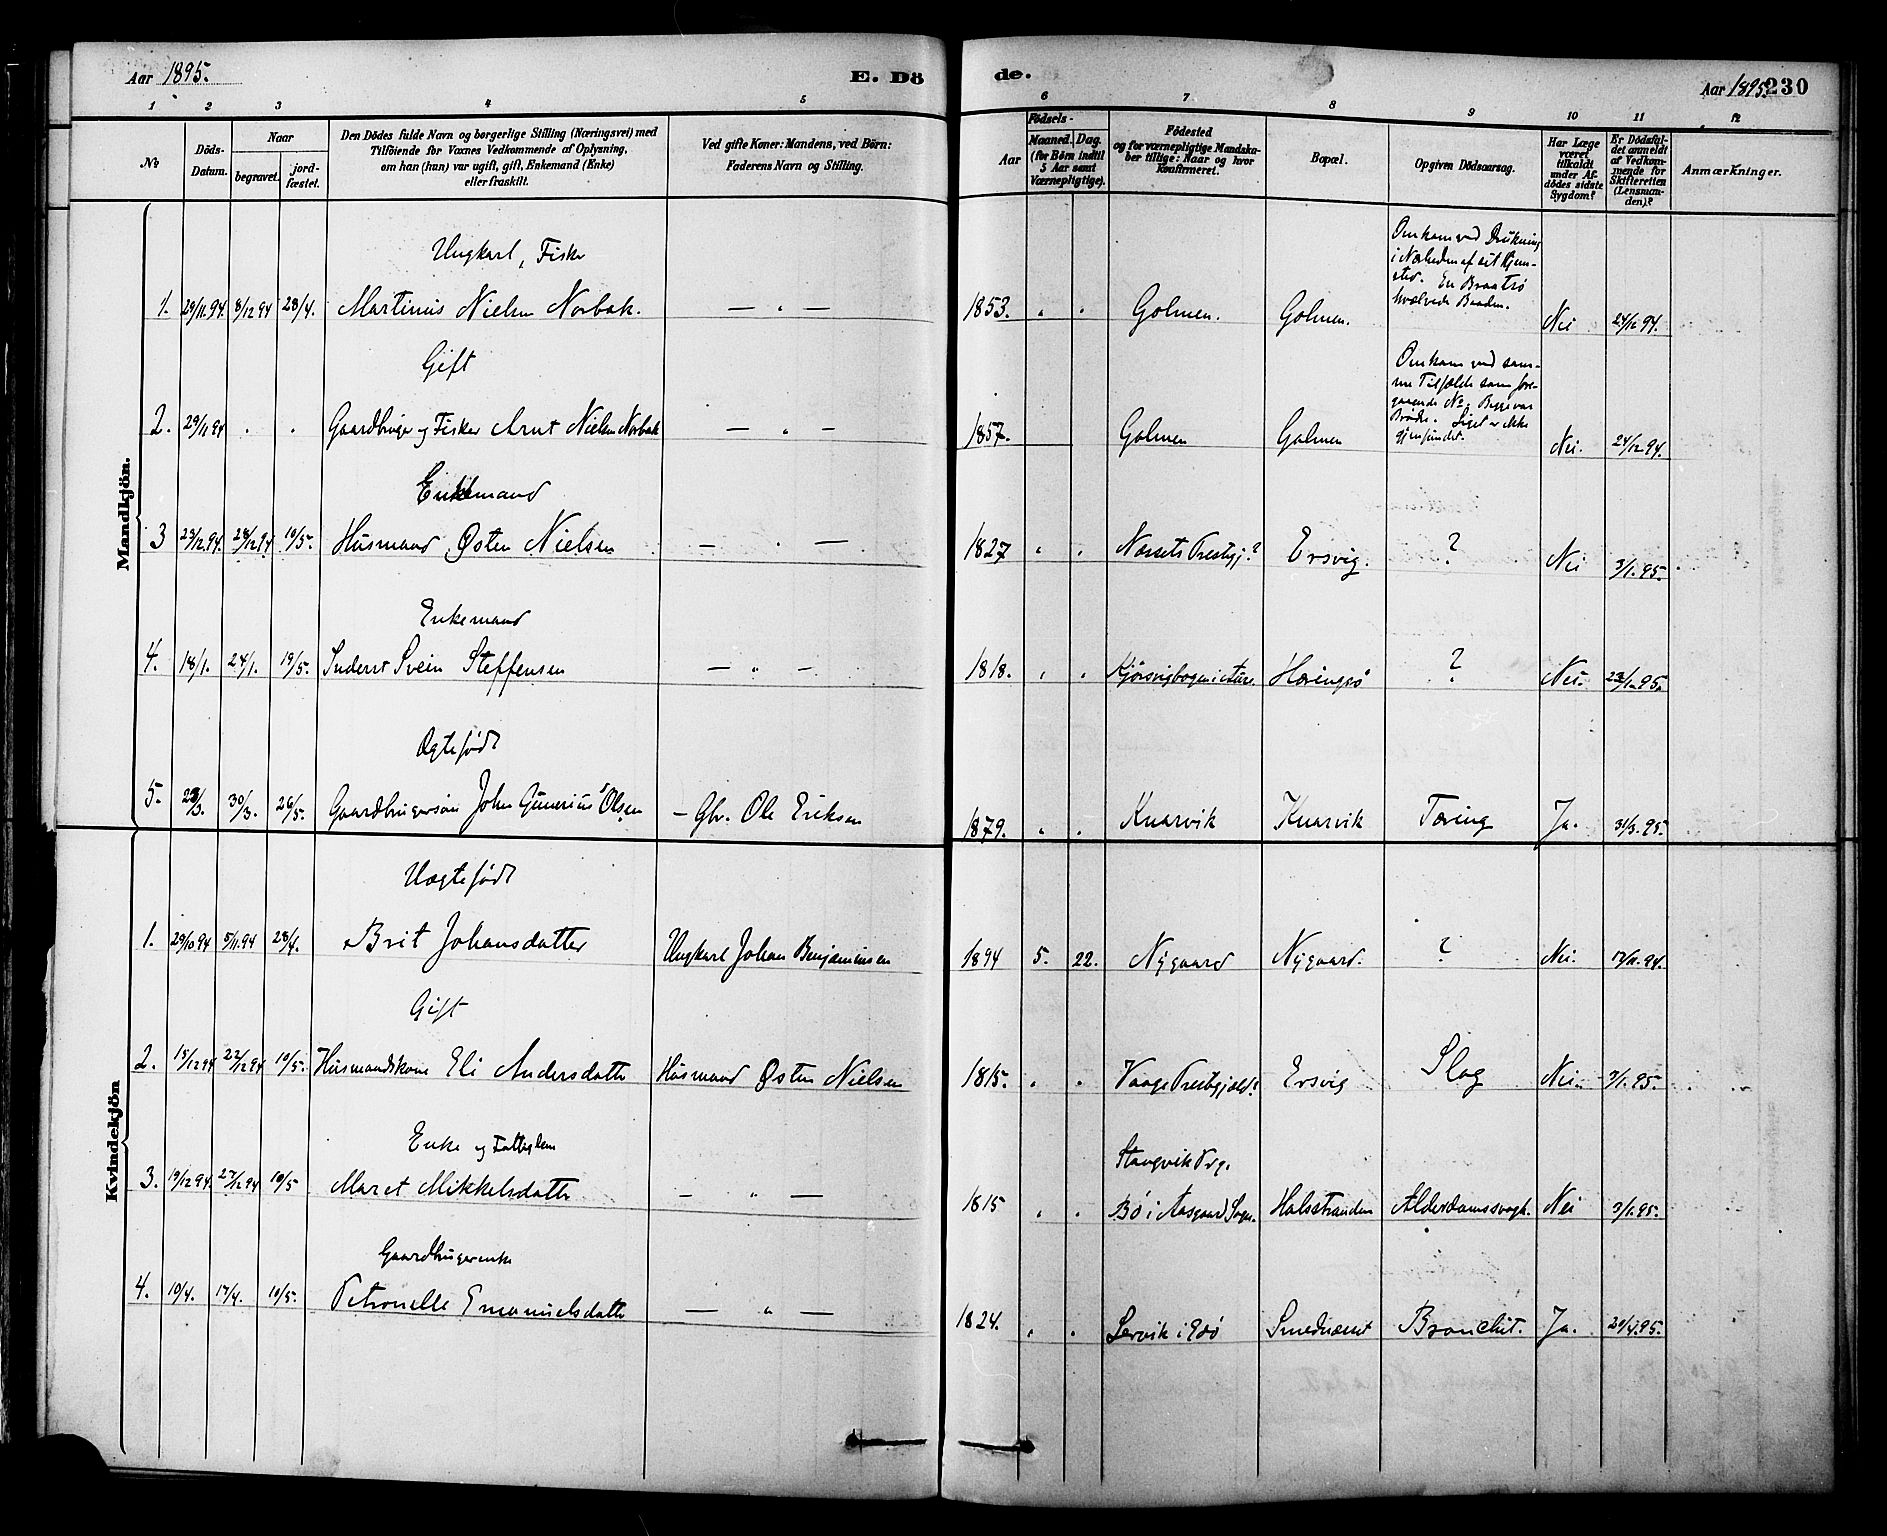 Aar 1895. E. Dö de. Aar 1895. 230
1 2 3 4 5 6 7 8 9 10 11 12
No
Döds-
Datum.
Naar
begravet.
jord-
fæstet.
Den Dödes fulde Navn og borgerlige Stilling (Næringsvei) med
Tilföiende for Voxnes Vedkommende af Oplysning,
om han (hun) var ugift, gift, Enkemand (Enke)
eller fraskilt.
Ved gifte Koner: Mandens, ved Börn:
Faderens Navn og Stilling.
Födsels-
Aar
Maaned. Dag.
(for Börn indtil
5 Aar samt
Værnepligtige).
Födested
og for værnepligtige Mandska-
ber tillige: Naar og hvor
Konfirmeret.
Bopæl.
Opgiven Dödsaarsag.
Har Læge
været
tilkaldt
under Af-
dödes sidste
Sygdom?
Er Dödsfal-
det anmeldt
af Vedkom-
mende for
Skifteretten
(Lensman-
den)?
Anmærkninger.
Mandkjön.
Ungkarl, Fisker
1. 29/11 94. 8/12 94 28/4. Martinus Nielsen Norbak. — " — 1853. " " Golmen. Golmen.
Omkom ved Drukning
i Nærheden af sit Hjem-
sted. En Braatsø
hvælvede Baaden.
Nei 24/12 94.
Gift
2. 29/11 94 . . Gaardbruger og Fisker Arnt Nielsen Norbak — " — 1857. Golmen Golmen
Omkom ved sam-
me Tilfælde som fore-
gaaende No. Begge var
Brødre. Liget er ikke
gjenfundet.
Nei. 24/12 94.
Enkemand
3 23/12 94. 28/12 94 10/5. Husmand, Østen Nielsen — " — 1827 " " Næssets Prestgj? Ersvig. ? Nei 3/1. 95.
Enkemand
4. 18/1. 24/1. 19/5. Inderst Svein Steffensen — " — 1818. " " Kjørsvigbogen i Aure. Høringsø ? Nei. 22/1. 95.
Ægtefødt
5. 23/3. 30/3. 26/5. Gaardbrugersøn John Gunerius Olsen — Gbr. Ole Eriksen 1879. " " Knarvik Knarvik Tæring Ja. 31/3. 95.
Kvindekjön
Uægtefødt
1. 29/10 94 5/11. 94 28/4. Brit Johansdatter Ungkarl Johan Benjaminsen 1894 5. 22. Nygaard Nygaard. ? Nei 12/11. 94.
Gift
2. 15/12 94 22/12 94 10/5. Husmandskone Eli Andersdatter Husmand Østen Nielsen 1815. " " Vaage Prestgjæld? Ersvig Slag Nei. 3/1. 95.
Enke og Fattiglem
3. 19/12 94. 27/12 94 10/5 Maret Mikkelsdatter — " — 1815 " "
Stangvik Prg.
Bø i Aasgaard Sogn. Halsstranden Alderdomssvagh. Nei 3/1. 95.
Gaardbrugerenke
4. 10/4. 17/4. 10/5. Petronelle Emanuelsdatter — " — 1824. " " Lervik i Edø Smednæset Bronchit. Ja. 20/4. 95.